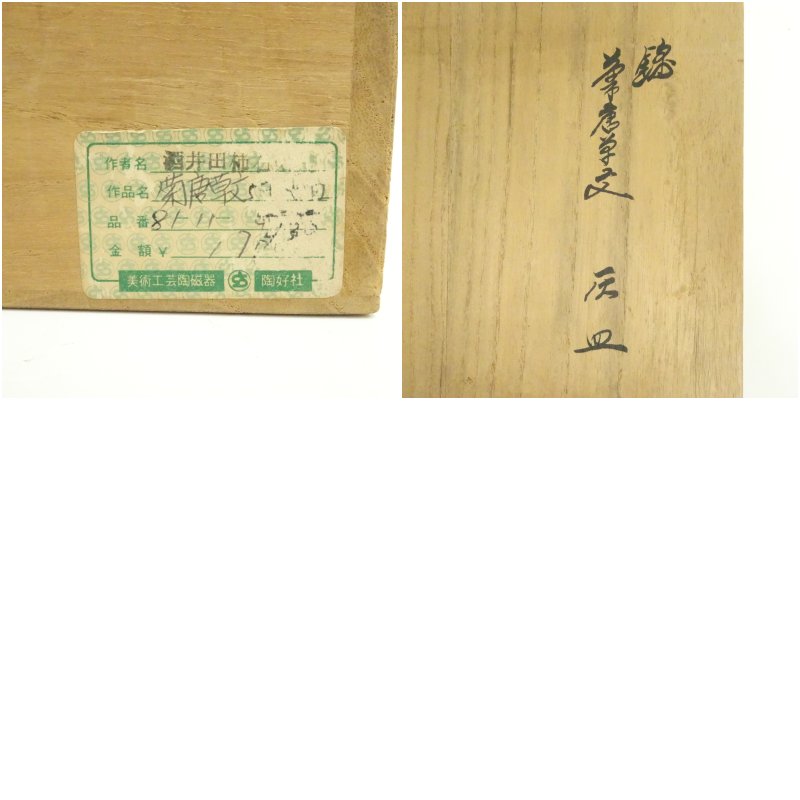 作者名 酒井田柿
作品名 菊唐草文
品番 81-11-
金額 ¥ 19
美術工芸陶磁器 陶好社
錦
菊唐草文
灰皿